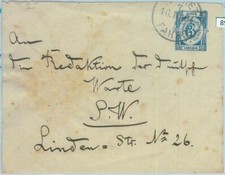 An
die Redaktion der Deutschen
Warte
S.W.
Linden-Str. No 26.